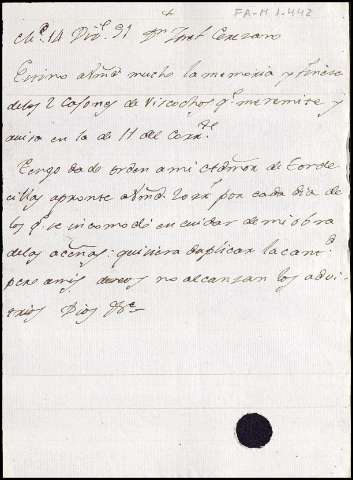 FA-M.1-442
+
M.ᵈ 14 Dic.ᵉ 91 Dn Josef Cerezano
Estimo a Vmd mucho la memoria y fineza
de los 2 Caxones de Viscochos q.ᵉ me remite y
avisa en la de 11 del Corr.ᵗᵉ
Tengo dado orden a mi Administ.ᵒʳ de Torde
cillas apronte a Vmd 20 rr.ˢ por cada dia de
los q.ᵉ se incomode en cuidar de mi obra
de las aceñas: quisiera duplicar la cant.ᵈ
pero a mis deseos no alcanzan los advi
trios Dios &c.ᵃ